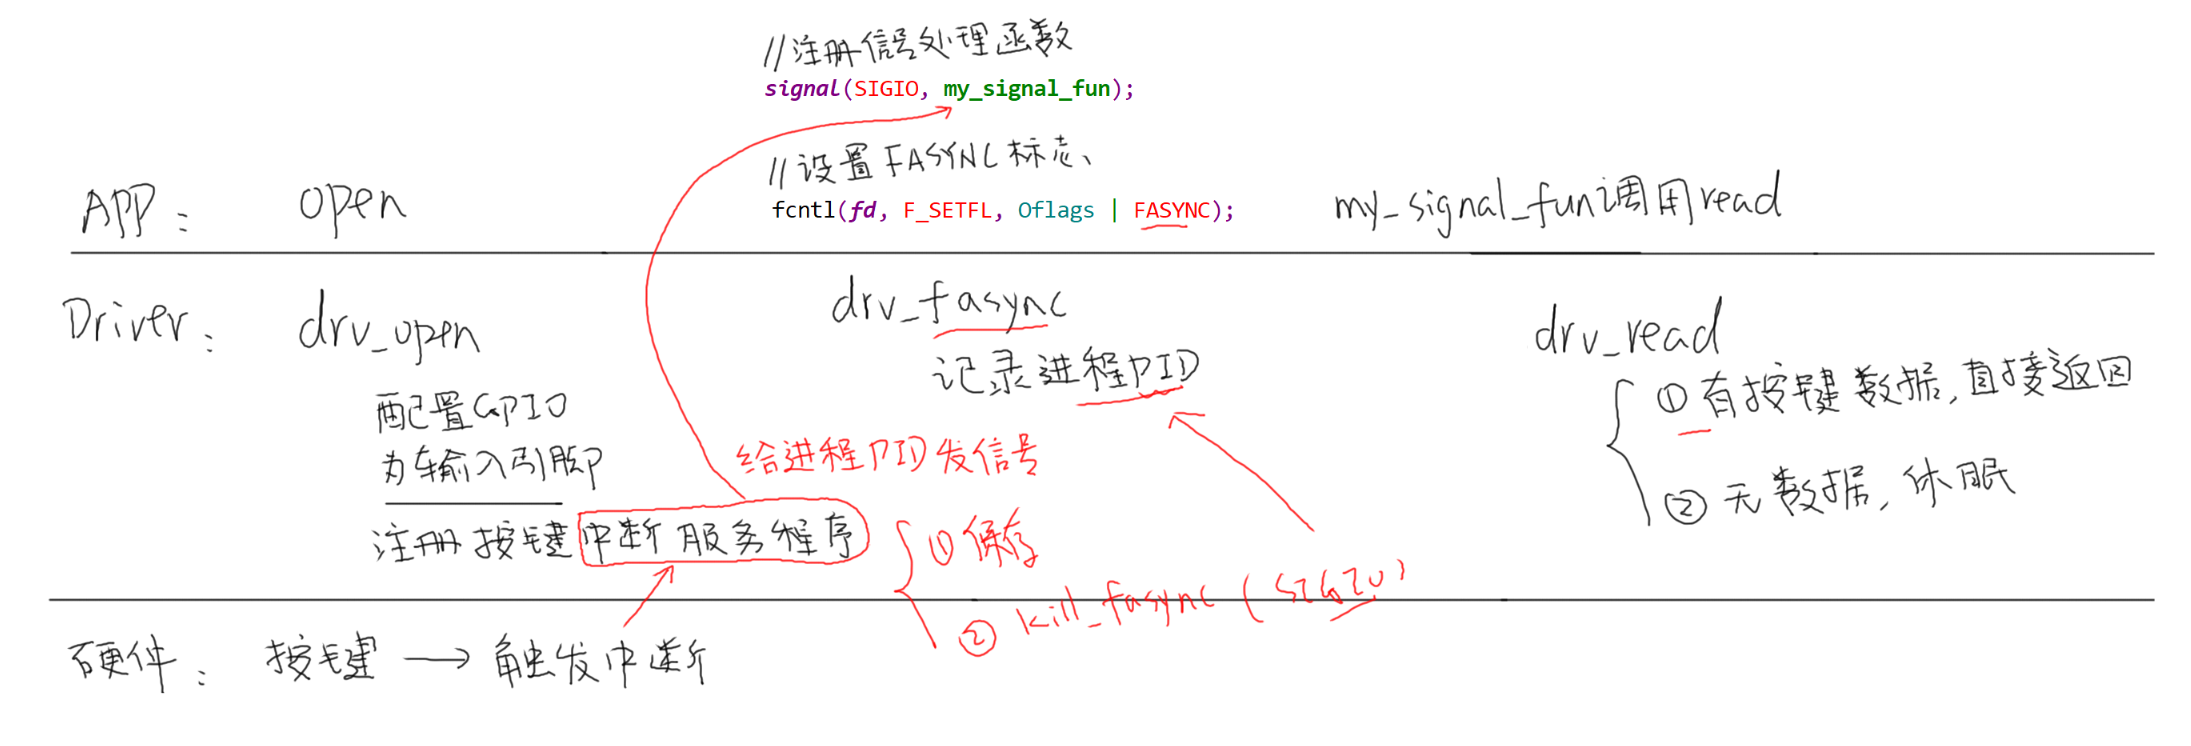 //注册信号处理函数
signal(SIGIO, my_signal_fun);
//设置FASYNC标志、
fcntl(fd, F_SETFL, Oflags | FASYNC);
APP: open
my_signal_fun调用read
Driver: drv_open
drv_fasync
drv_read
配置GPIO
为输入引脚
注册按键中断服务程序
记录进程PID
给进程PID发信号
①保存
② kill_fasync (SIGIO)
①有按键数据,直接返回
②无数据,休眠
硬件: 按键 → 触发中断